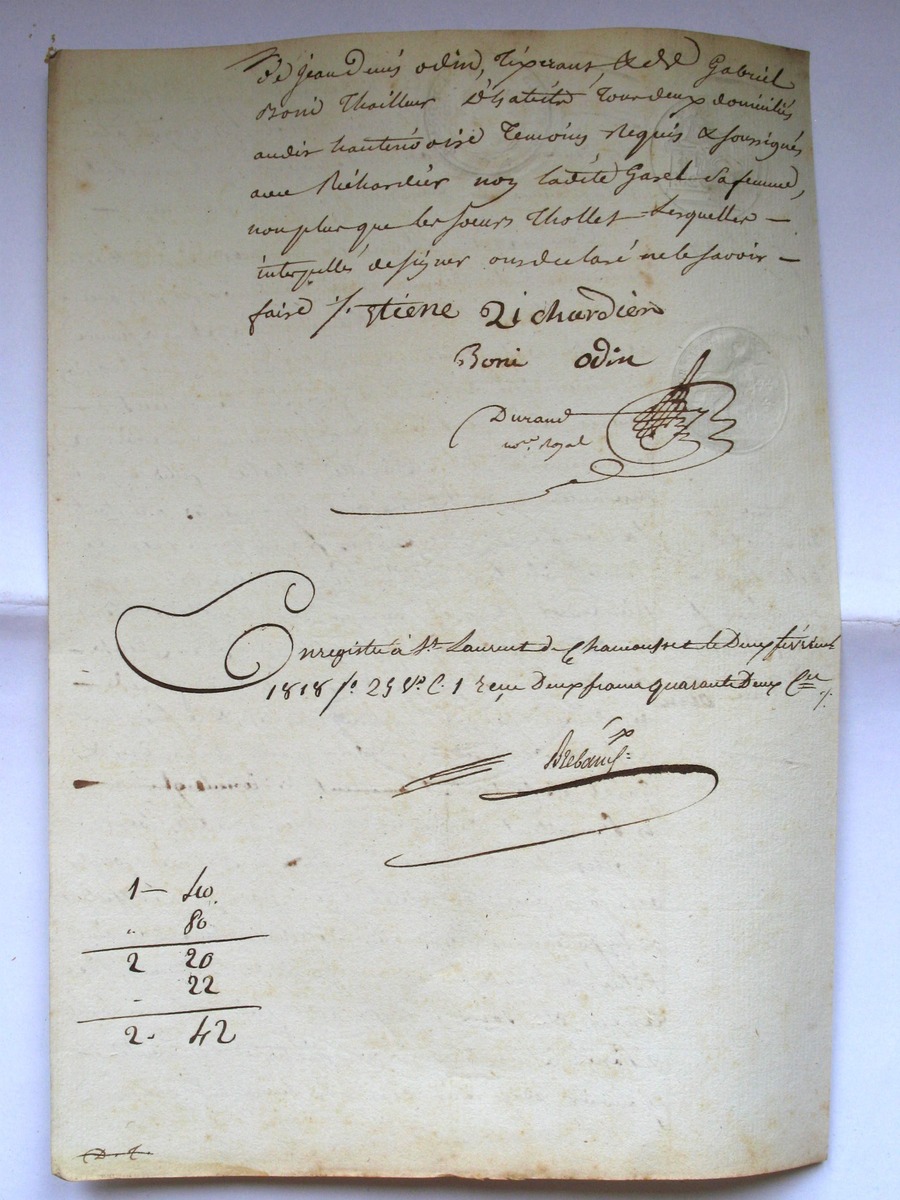 de jean Denis odin, Tixerant, & de Gabriel
Boni Thailleur D'habits Tous deux domiciliés
audit hauterivoire Temoins Requis & soussignés
avec Richardier non ladite Garel Sa femme,
non plus que les Soeurs Thollet Lesquelles —
interpellés de signer ont declaré ne le savoir —
faire /. Etiene Richardier
Boni odin
Durand
nore. Royal
Enregistré à St. Laurent de Chamousset le Deux février
1818 fo 25 Vo C. 1 reçu Deux francs quarante Deux Cen /.
1 — 40.
.. 80
2 20
- 22
2 - 42
D. f.